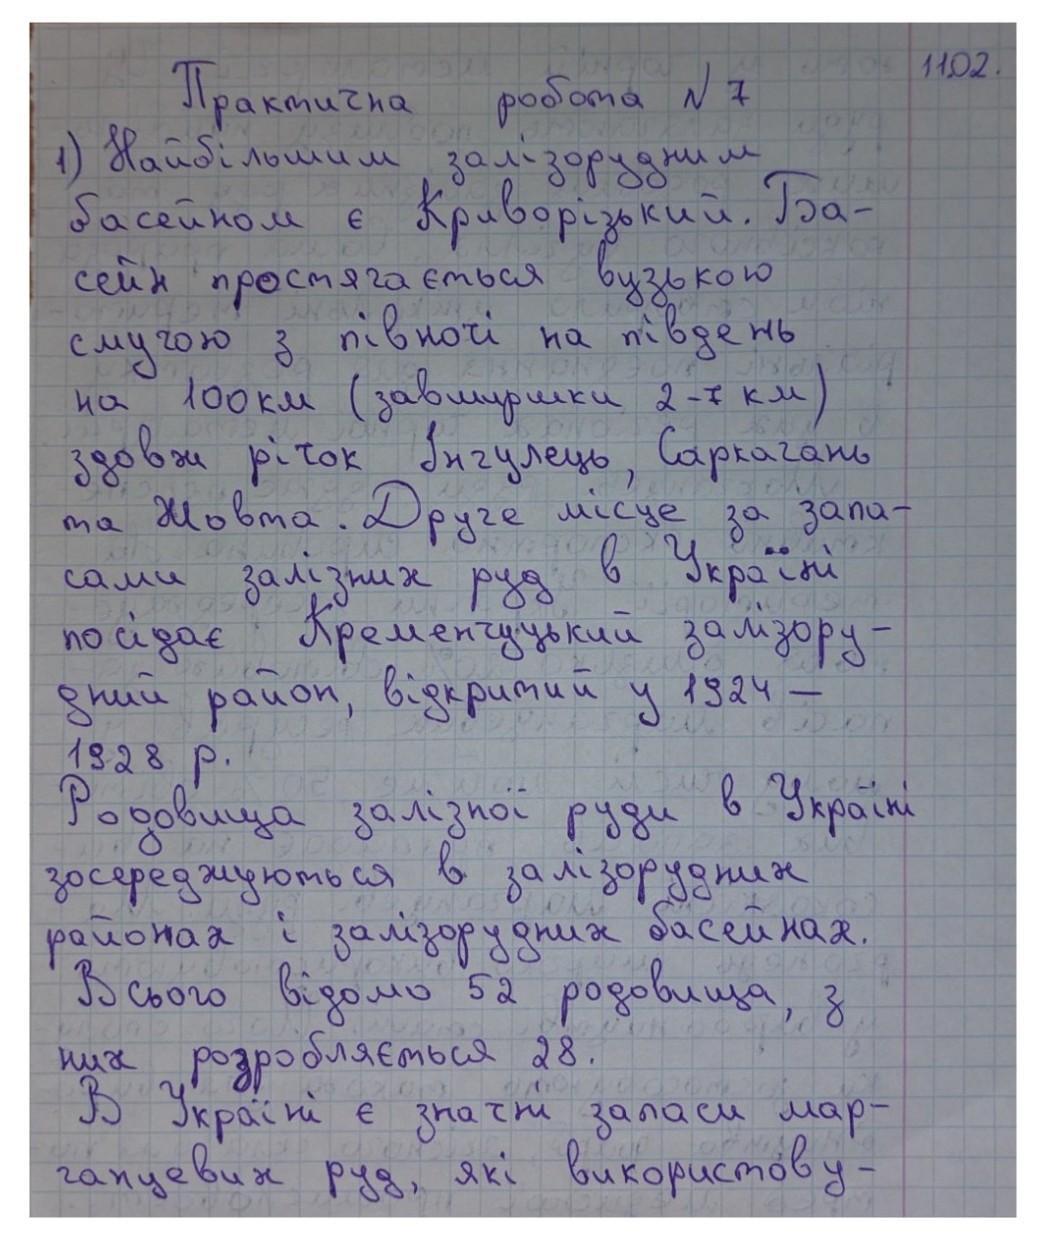 11.02.
Практична робота №7
1) Найбільшим залізорудним
басейном є Криворізький. Ба-
сейн простягається вузькою
смугою з півночі на південь
на 100км (завширшки 2-7 км)
здовж річок Інгулець, Саркагань
та Жовта. Друге місце за запа-
сами залізних руд в Україні
посідає Кременчуцький залізору-
дний район, відкритий у 1924 —
1928 р.
Родовища залізної руди в Україні
зосереджуються в залізорудних
районах і залізорудних басейнах.
Всього відомо 52 родовища, з
них розробляється 28.
В Україні є значні запаси мар-
ганцевих руд, які використову-